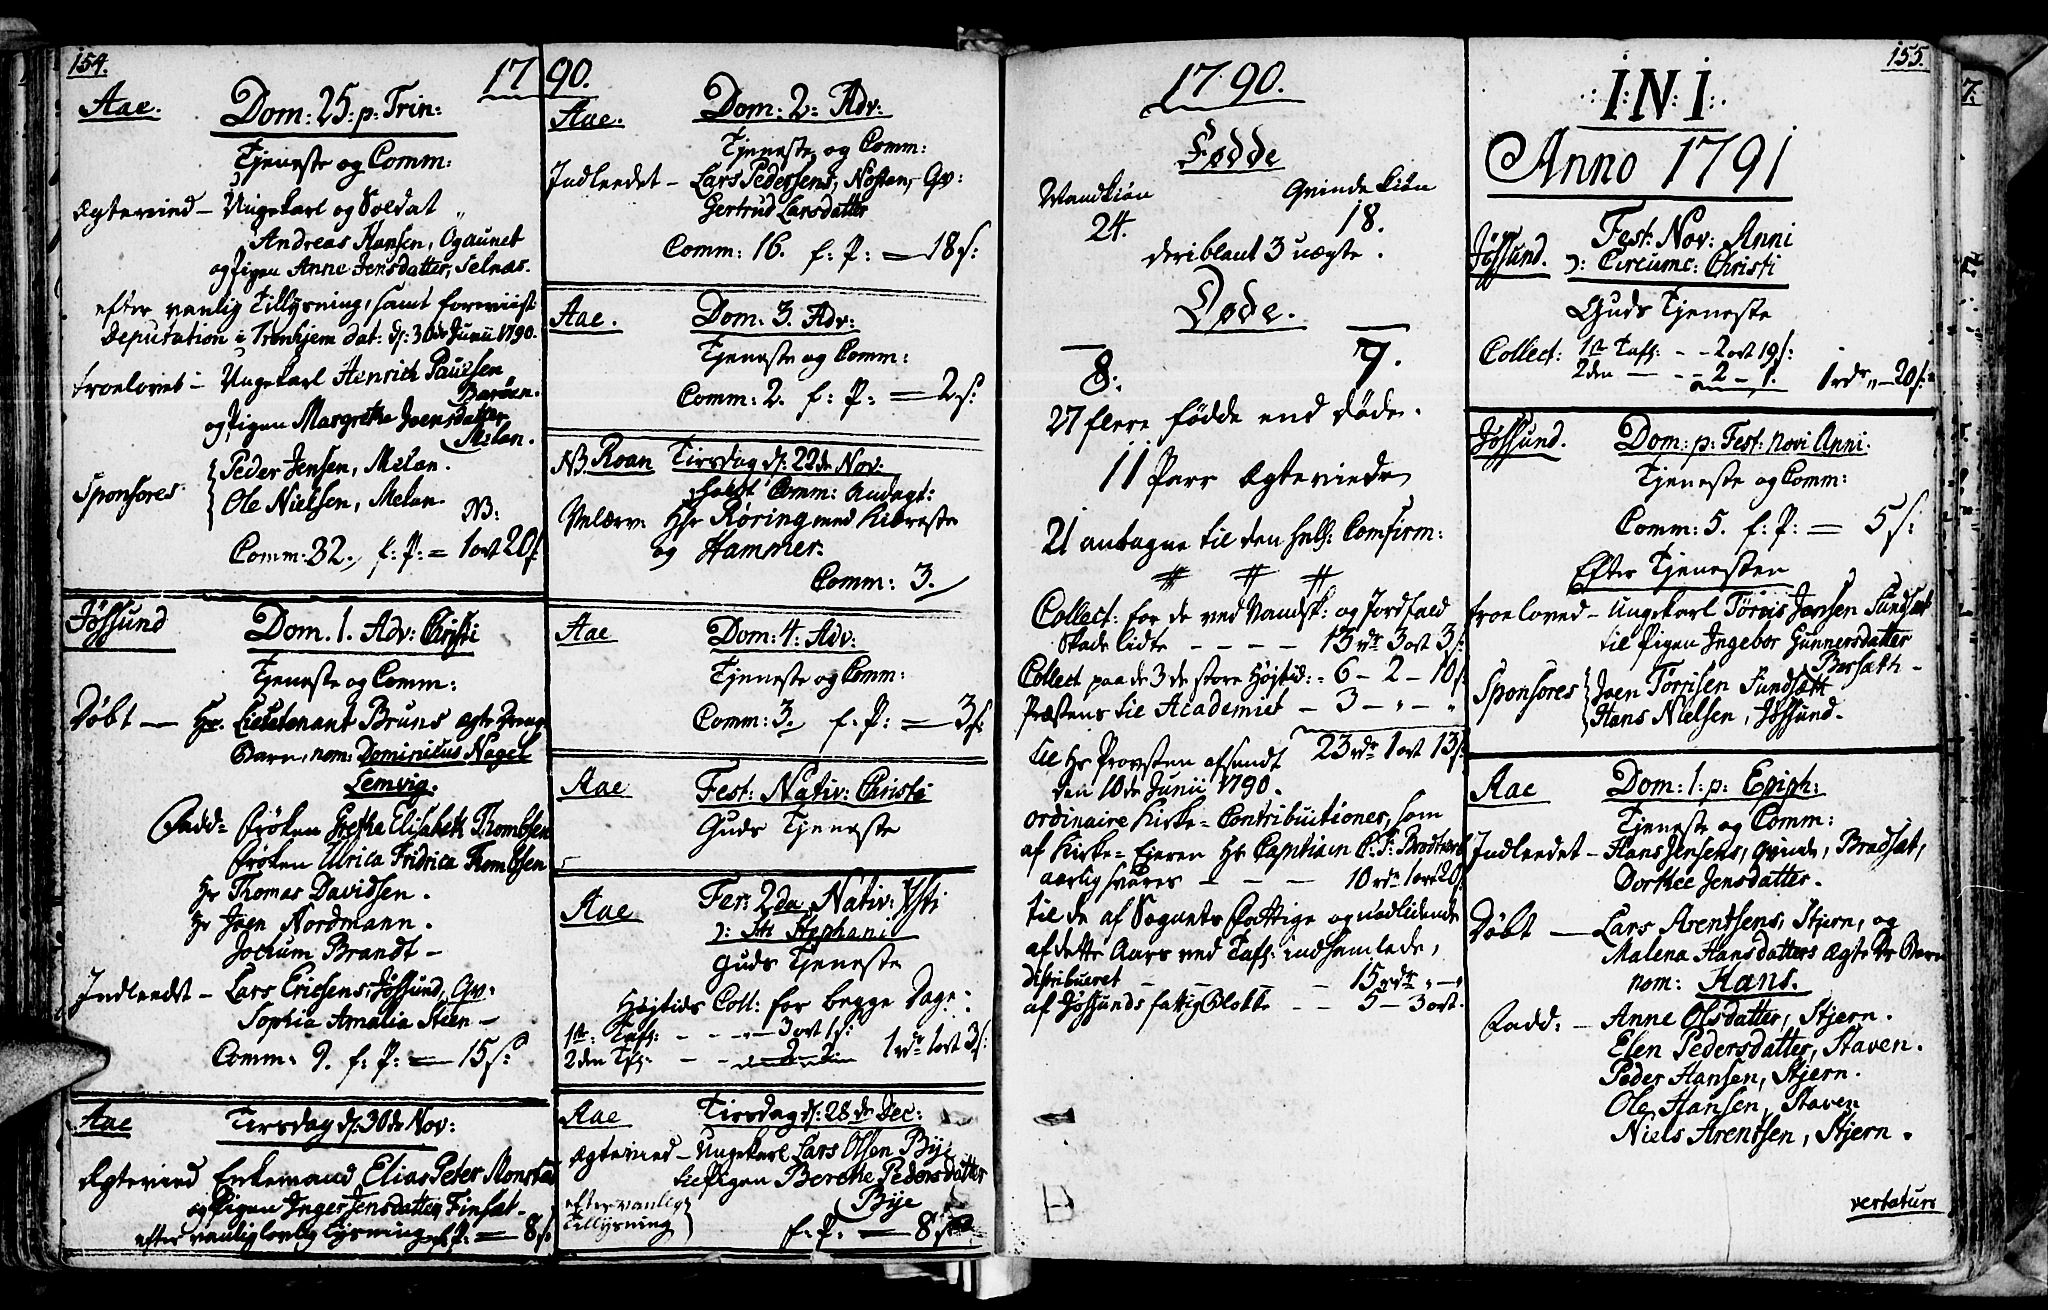 154.
1790.
Aae. Dom: 25: p: Trin:
Tjeneste og Comm:
Ægtevied – Ungekarl og Soldat
Andreas Hansen, Ogaunet
og Pigen Anne Jensdatter, Selnæs.
efter vanlig Tillysning, samt foreviist
Deputation i Tronhjem dat: d: 30de Junii 1790.
Troelovet – Ungekarl Henrich Paulsen
Barøen.
og Pigen Margrethe Joensdatter
Melan.
Sponsores Peder Jensen, Melan.
Ole Nielsen, Melan.
NB:
Comm: 32. f: P: = 1 ort 20 s
Jøssund Dom. 1. Adv: Christi
Tjeneste og Comm:
Døbt — Hr. Lieutenant Bruns ægte Drenge
Barn, nom: Dominicus Nagel
Lemvig.
Fadd: Frøken Gretha Elisabeth
Frøken Ulrica Fridrica
Hr Thomas Davidsen.
Hr Joen Nordmann.
Jochum Brandt –
Indleedt – Lars Ericsens, Jøssund, Qv:
Sophia Amalia Steen –
Comm: 9. f: P: = 15 s:
Aae Tirsdag d: 30de Nov:
Ægtevied Enkemand Elias Peter
og Pigen Inger Jensdatter, Finsæt –
efter vanlig lovlig lysning f: P: = 8 s
Aae. Dom: 2: Adv:
Tjeneste og Comm:
Indleedet – Lars Pedersens, Nesten, Qv:
Gertrud Larsdatter
Comm: 16. f: P: = 18 s:
Aae. Dom: 3. Adv:
Tjeneste og Comm:
Comm: 2. f: P: = 2 s:
NB. Roan Tirsdag d: 22de Nov:
holdt Comm: Andagt:
Velærv: Hr Røring med Kiæreste
og Hammer.
Comm: 3.
Aae Dom: 4: Adv:
Tjeneste og Comm:
Comm: 3. f: P: = 3 s
Aae Fest: Nativ: Christi
Guds Tjeneste
Aae Fer: 2da Nativ: Xsti
ɔ: Sti Stephani
Guds Tjeneste
Højtids Coll: for begge Dage:
1te: Tafl: - - - 3 ort 1 s:
2den Tfl: - - 2 - 2 1 rdr 1 ort 3 s:
Aae Tirsdag d: 28de Dec:
Ægtevied – Ungekarl Lars Olsen Bye
til Pigen Berethe Pedersdatter
Bye
efter vanlig
Tillysning
f: P: — 8 s
1790.
Fødde
Mandkiøn Qvinde Kiøn
24. 18.
deriblant 3 uægte.
Døde.
8. 7.
27 flere fødde end døde.
11 Parr Ægteviede
21 antagne til den hell: Comfirm:
Collect: for de ved Vandsk: og Jordfald
Skade lidte - - - - 13 rdr 3 ort 3 s:
Collect paa de 3de store Højtid: = 6 – 2 – 10 s
Præstens til Academiet – 3 – „ – „
23 rdr 1 ort 13 s
til Hr Provsten afsendt
den 10de Junii 1790.
Ordinaire Kirke=Contributioner, som
af Kirke=Ejeren Hr Capitain C: F:
aarlig svares — — — 10 rdr 1 ort 20 s
til de af Sognets Fattige og nødlidende
af dette Aars ved Tafl: indsamlede,
distribueret - - - 15 rdr „ – „
af Jøssunds fattig Blok - - 5 – 3 ort.
155.
I: N: I:
Anno 1791
Jøssund. Fest: Nov: Anni
ɔ: Circumc: Christi
Guds Tjeneste
Collect: 1te Tafl: - - 2 ort 19 s:
2den — - - 2 – 1. 1 rdr „ – 20 s:
Jøssund. Dom: p: Fest: novi Anni.
Tjeneste og Comm:
Comm: 5. f: P: = 5 s:
Efter Tjenesten
Troeloved – Ungekarl Tørris Jensen Sundsæt
til Pigen Ingebor Gunnersdatter
Bersætt –
Sponsores Joen Torrisen Sundsætt
Hans Nielsen, Jøssund.
Aae Dom: 1: p: Epiph:
Tjeneste og Comm:
Indleedet – Hans Jensens, Qvinde, Bradsæt,
Dorthee Jensdatter.
Døbt — Lars Arentsens, Stjern, og
Malena Hansdatters ægte Dr Barn
nom: Hans.
Fadd: – Anne Olsdatter, Stjern.
Elen Pedersdatter, Staven.
Peder Hansen, Stjern.
Ole Hansen, Staven
Niels Arentsen, Stjern.
vertatur: